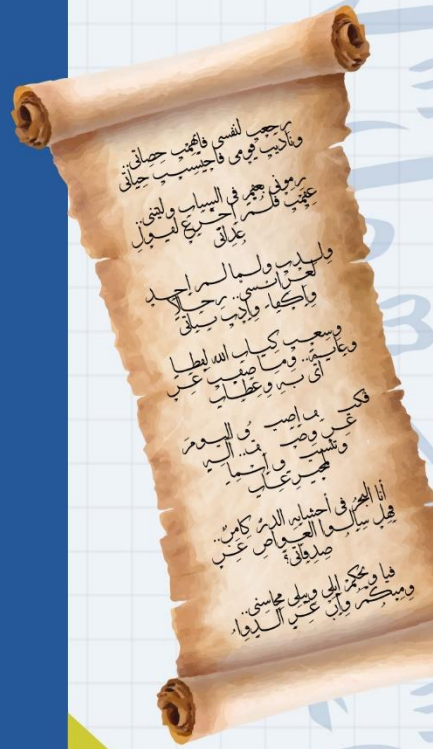 رجعت لنفسي فاتهمت حصاتي..
وناديت قومي فاحتسبت حياتي
رموني بعقم في الشباب وليتني..
عقمت فلم اجزع لقول
عداتي
ولدت ولما لم اجد
لعرائسي.. رجالا
واكفاء وادت بناتي
وسعت كتاب الله لفظا
وغاية.. وما ضقت عن
آي به وعظات
اليوم
عن وصف
أنا البحر في أحشايه الدر كامن..
فهل سالوا الغواص عن
صدفاتي؟
فيا ويحكم ابلى وتبلى محاسني..
ومنكم وان عز الدواء